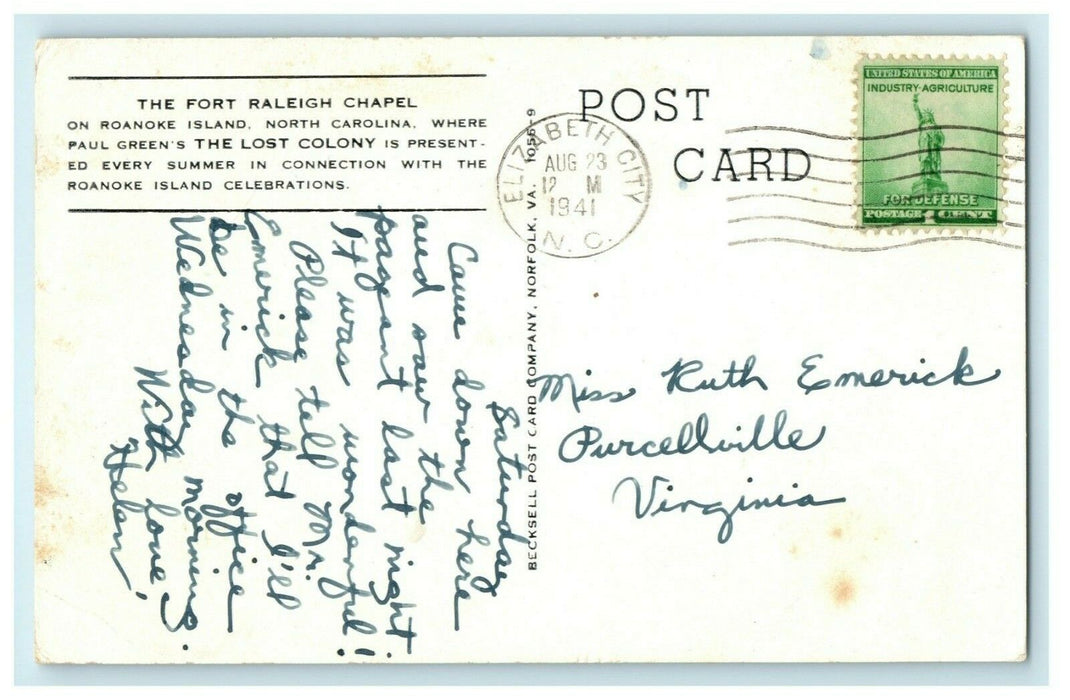 THE FORT RALEIGH CHAPEL
ON ROANOKE ISLAND, NORTH CAROLINA, WHERE
PAUL GREEN'S THE LOST COLONY IS PRESENT-
ED EVERY SUMMER IN CONNECTION WITH THE
ROANOKE ISLAND CELEBRATIONS.
Saturday
Came down here
and saw the
pageant last night.
It was wonderful!
Please tell Mr.
Emerick that I'll
be in the office
Wednesday morning.
With love,
Helen!
BECKSELL POST CARD COMPANY, NORFOLK, VA. 1055-9
POST
CARD
ELIZABETH CITY
AUG 23
12 M
1941
N. C.
UNITED STATES OF AMERICA
INDUSTRY-AGRICULTURE
FOR DEFENSE
POSTAGE 1 CENT
Miss Ruth Emerick
Purcellville
Virginia